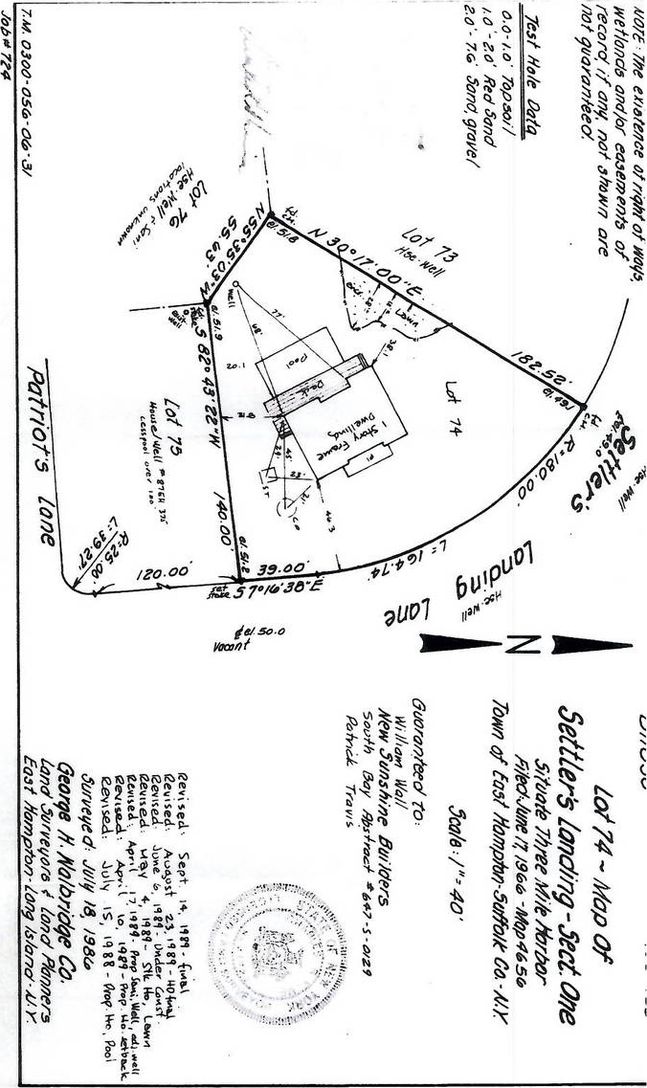 NOTE: The existence of right of ways
wetlands and/or easements of
record, if any, not shown are
not guaranteed.
Test Hole Data
0.0-1.0' Topsoil
1.0'-2.0' Red Sand
2.0'-7.6' Sand, gravel
T.M. 0300-056-06-31
Job# 724
Lot 76
Hse. Well & Sani
locations unknown
N 55° 35' 03" W
55.63'
el. 51.8
Lot 73
Hse. Well
N 30° 17' 00" E
182.52'
Lawn
Well
77'
68'
Pool
Deck
1 Story Frame
Dwelling
Pl
Lot 74
20.1
el. 51.9
S 82° 43' 22" W
140.00'
el. 51.2
Lot 75
House/Well
cesspool over 100'
ST
45'
44.3
39.00'
S 7° 16' 38" E
set
stake
120.00'
R=25.00'
L=39.27'
Patriot's Lane
R=180.00'
L=164.74'
Settler's
Landing
Lane
Hse. Well
Hse. Well
el. 50.0
Vacant
N
Lot 74 ~ Map Of
Settler's Landing - Sect. One
Situate Three Mile Harbor
Filed: June 17, 1966 - Map 4656
Town of East Hampton - Suffolk Co. - N.Y.
Scale: 1" = 40'
Guaranteed to:
William Wall
New Sunshine Builders
South Bay Abstract # 647-S-0129
Patrick Travis
Revised: Sept. 14, 1989 - final
Revised: August 23, 1989 - HD final
Revised: June 6, 1989 - Under Const.
Revised: May 4, 1989 - Stk Ho., Lawn
Revised: April 17, 1989 - Prop Sani, Well, adj. well
Revised: April 10, 1989 - Prop. Ho. setback
Revised: July 15, 1988 - Prop. Ho, Pool
Surveyed: July 18, 1986
George H. Walbridge Co.
Land Surveyors & Land Planners
East Hampton - Long Island - N.Y.
STATE OF NEW YORK